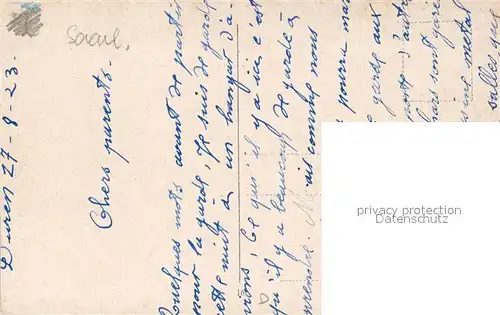 Saarl.
Duren 27-8-23.
Chers parents.
Quelques mots avant de partir
pour la garde, Je suis de garde
cette nuit à un hangar d'a-
vions, Ce qu'il y a ici c'est
qu'il y a beaucoup de garde à
prendre. Mais comme nous
pourra
garde aux
d'autre
sont
metal
salles
privacy protection
Datenschutz